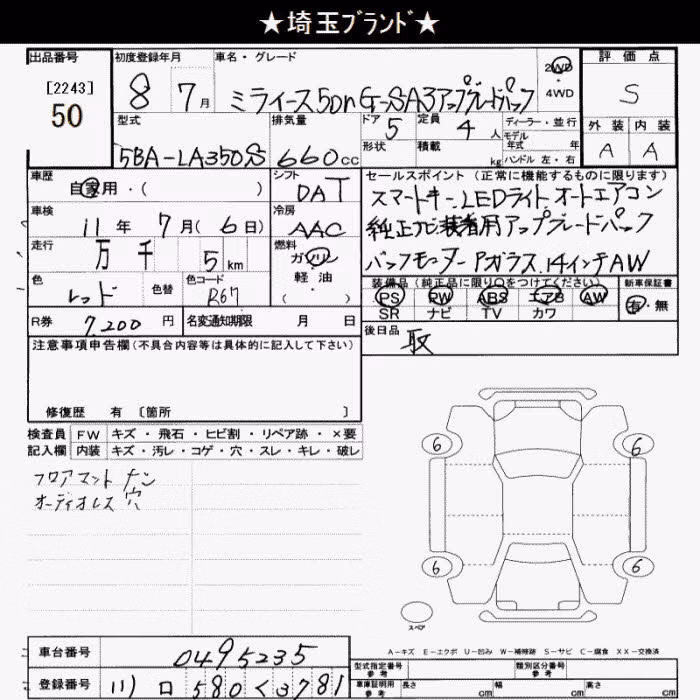 ★埼玉ﾌﾞﾗﾝﾄﾞ★
出品番号 初度登録年月 車名・グレード 評価点
[2243]
50
8 7月 ミライース5Dr G-SA3アップグレードパック 2WD・4WD S
型式 排気量 ドア 5 定員 4人 ディーラー・並行 外装 内装
モデル年式 年
5BA-LA350S 660cc 形状 積載 kg ハンドル 左・右 A A
車歴 自家用・( ) シフト DAT セールスポイント (正常に機能するものに限ります)
スマートキー.LEDライト オートエアコン
車検 11年 7月(6日) 冷房 AAC 純正元装着用アップグレードパック
走行 万 千 5km 燃料 ガソリン・軽油 ( ・ ) バックモーター Pガラス.14インチAW
色 レッド 色替 色コード R67 装備品 (純正品に限り○をつけてください) 新車保証書
PS PW ABS エアB AW 有・無
SR ナビ TV カワ
R券 7,200円 名変通知期限 月 日 後日品 取
注意事項申告欄(不具合内容等は具体的に記入して下さい)
修復歴 有 [箇所 ]
検査員 FW キズ・飛石・ヒビ割・リペア跡・×要
記入欄 内装 キズ・汚レ・コゲ・穴・スレ・キレ・破レ
6 6
フロアマットナシ
オーディオレス穴
6 6
スペア
A-キズ E-エクボ U-凹み W-補修跡 S-サビ C-腐食 XX-交換済
車台番号 0495235 型式指定番号 参考 類別区分番号 参考
登録番号 川口 580 く 3781 車庫証明用 参考 長さ cm 幅 cm 高さ cm